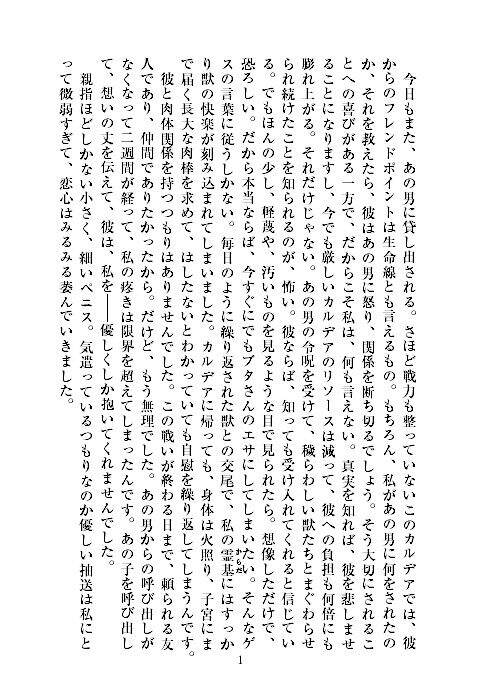 今日もまた、あの男に貸し出される。さほど戦力も整っていないこのカルデアでは、彼
からのフレンドポイントは生命線とも言えるもの。もちろん、私があの男に何をされたの
か、それを教えたら、彼はあの男に怒り、関係を断ち切るでしょう。そう大切にされるこ
とへの喜びがある一方で、だからこそ私は、何も言えない。真実を知れば、彼を悲しませ
ることになりますし、今でも厳しいカルデアのリソースは減って、彼への負担も何倍にも
膨れ上がる。それだけじゃない。あの男の令呪を受けて、穢らわしい獣たちとまぐわらせ
られ続けたことを知られるのが、怖い。彼ならば、知っても受け入れてくれると信じてい
る。でもほんの少し、軽蔑や、汚いものを見るような目で見られたら。想像しただけで、
恐ろしい。だから本当ならば、今すぐにでもブタさんのエサにしてしまいたい。そんなゲ
スの言葉に従うしかない。毎日のように繰り返された獣との交尾で、私の霊基からだにはすっか
り獣の快楽が刻み込まれてしまいました。カルデアに帰っても、身体は火照り、子宮にま
で届く長大な肉棒を求めて、はしたないとわかっていても自慰を繰り返してしまうんです。
　彼と肉体関係を持つつもりはありませんでした。この戦いが終わる日まで、頼られる友
人であり、仲間でありたかったから。だけど、もう無理でした。あの男からの呼び出しが
なくなって二週間が経って、私の疼きは限界を超えてしまったんです。あの子を呼び出し
て、想いの丈を伝えて、彼は、私を――優しくしか抱いてくれませんでした。
　親指ほどしかない小さく、細いペニス。気遣っているつもりなのか優しい抽送は私にと
って微弱すぎて、恋心はみるみる萎んでいきました。
1